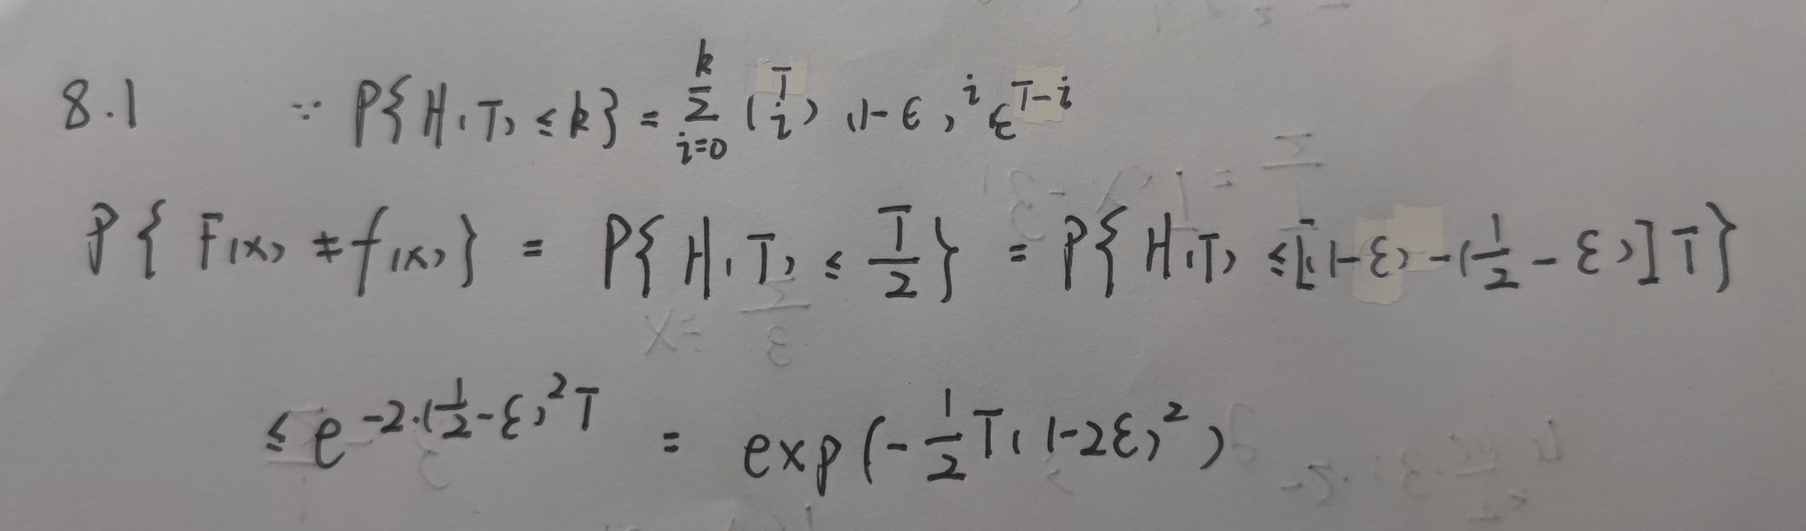 8.1 ∵ P{H(T) ≤ k} = \sum_{i=0}^{k} \binom{T}{i} (1-ε)^i ε^{T-i}
P{F(x) ≠ f(x)} = P{H(T) ≤ \frac{T}{2}} = P{H(T) ≤ [(1-ε) - (\frac{1}{2} - ε)]T}
≤ e^{-2·(\frac{1}{2}-ε)^2 T} = exp(-\frac{1}{2}T(1-2ε)^2)